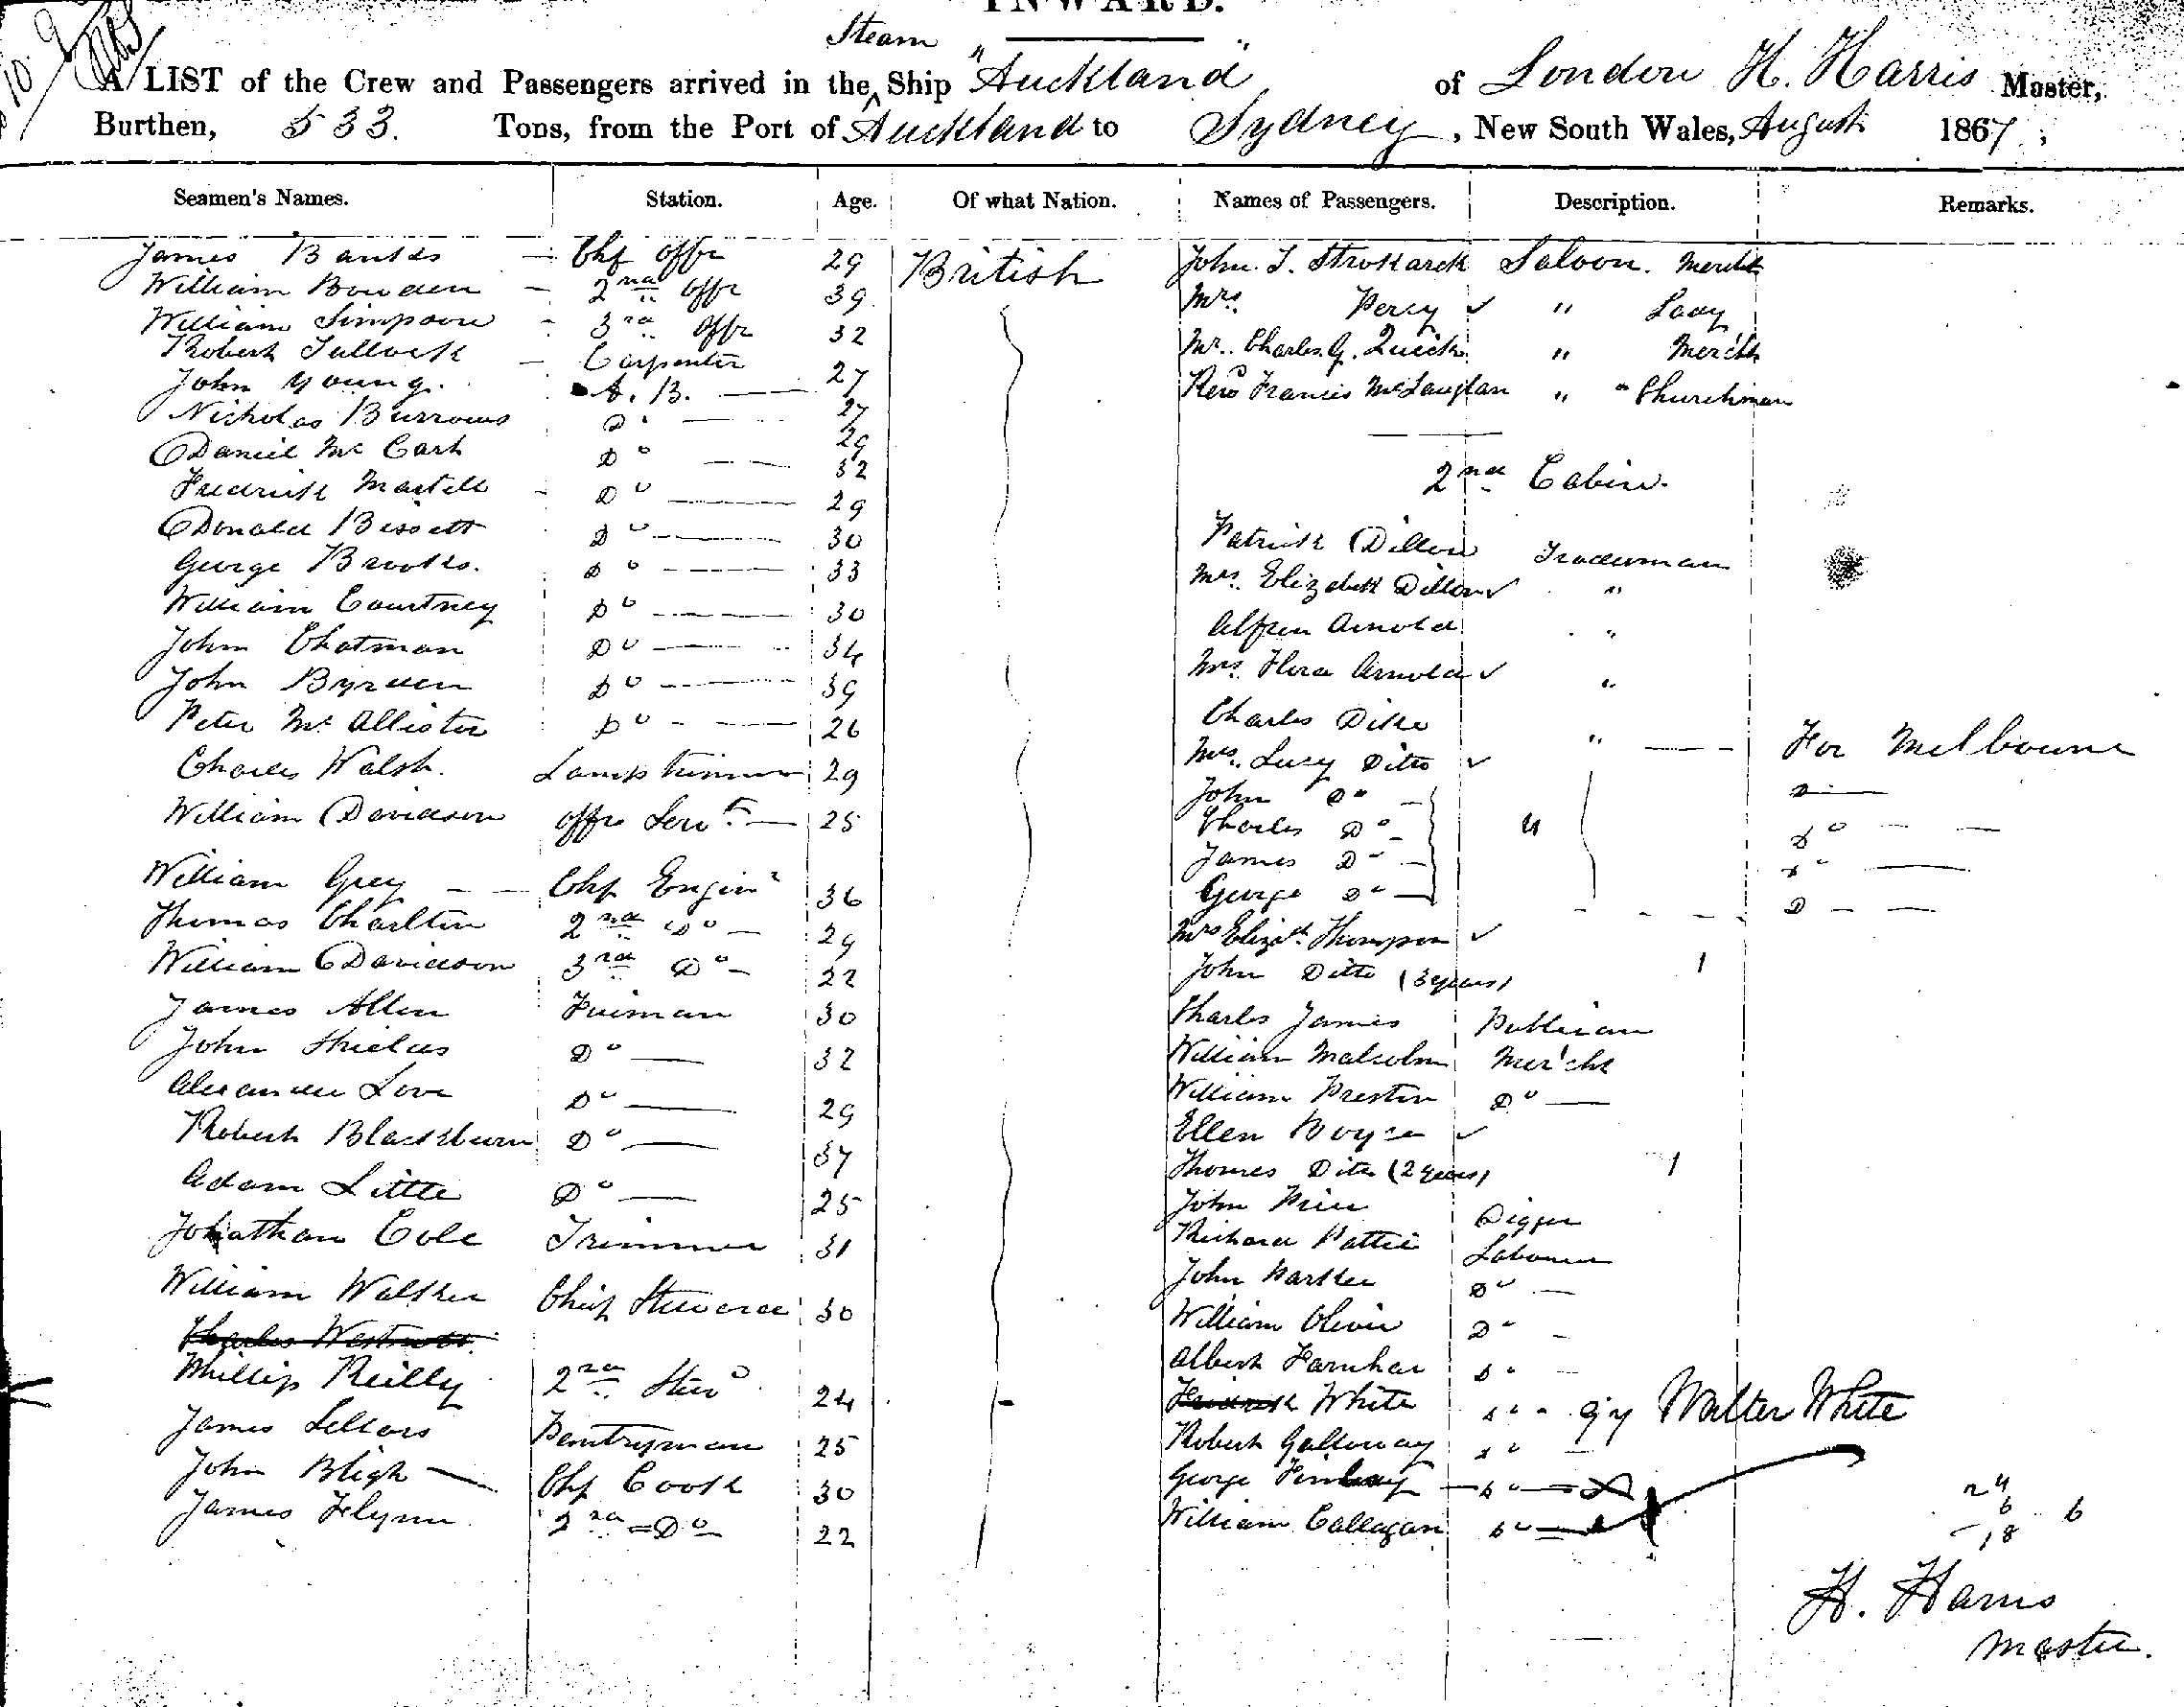 INWARD.
Steam
A LIST of the Crew and Passengers arrived in the ^ Ship "Auckland" of London H. Harris Master,
Burthen, 533. Tons, from the Port of Auckland to Sydney, New South Wales, August 1867,
Seamen's Names. Station. Age. Of what Nation. Names of Passengers. Description. Remarks.
James Banks — Chf offr 29 British
William Bowden — 2nd offr 39
William Simpson - 3rd offr 32
Robert Tullock — Carpenter
John Young. A. B. — 27
Nicholas Burrows Do — 27
Daniel Mc Cash Do — 29
Fredrick Martell - Do — 32
Donald Bissett Do — 29
George Brooks. Do — 30
William Courtney Do — 33
John Chatman Do — 30
John Do — 34
Peter Mc Allister Do — 39
26
Charles Walsh. Lamp trimmer 29
William Davidson offr Servt — 25
William Grey — Chf Enginr 36
Thomas Charlton 2nd Do — 29
William Davidson 3rd Do — 22
James Allen Fireman 30
John Shields Do — 32
Alexander Love Do — 29
Robert Blackburn Do — 37
Adam Little Do — 25
Johathan Cole Trimmer 31
William Walker Chief Steward 30
Charles
Phillip Reilly 2nd Stewd 24
James Sellars Pantryman 25
John Bligh — Chf Cook 30
James Flynn 2nd = Do 22
John. T. Saloon. Mercht
Mrs. Percy ✓ " Lady
Mr. Charles G. Quick " Mercht
Revd Francis McLauglan " " Churchman
2nd Cabin.
Patrick Dillon Tradesman
Mrs. Elizabeth Dillon ✓ "
Alfred Arnold "
Mrs. Flora Arnold ✓ "
Charles Dike " — For Melbourne
Mrs. Lucy Ditto ✓
John Do — Do —
Charles Do — " Do —
James Do — Do —
George Do — Do —
Mrs Elizth Thompson ✓
John Ditto (3 years) 1
Charles James Publican
William Malcolm Mercht
William Preston Do —
Ellen Boyce ✓
Thomas Ditto (2 years) 1
John Price Digger
Richard Pattie Labourer
John Parker Do —
William Oliver Do -
Albert Farnhar Do —
Fredrick White Do - Walter White
Robert Galloway Do —
George Finlay — Do —
William Callagan Do —
24
6 6
18
H. Harris
Master.